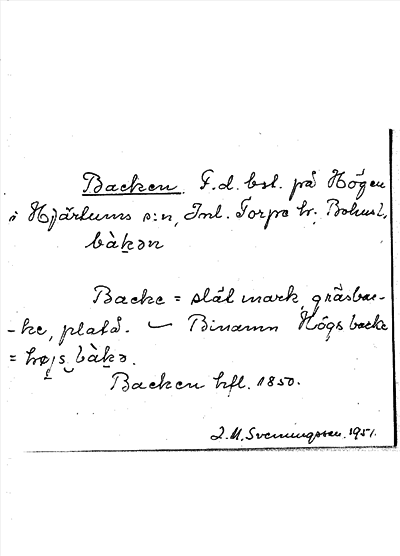 Backen. F.d. bst. på Högen
i Hjärtums s:n, Inl. Torpe hr, Bohusl.
bàḵən
Backe = slät mark, gräsbac-
-ke, platå. — Binamn Högs backe
= bàḵə.
Backen hfl. 1850.
Svenningsson. 1951.